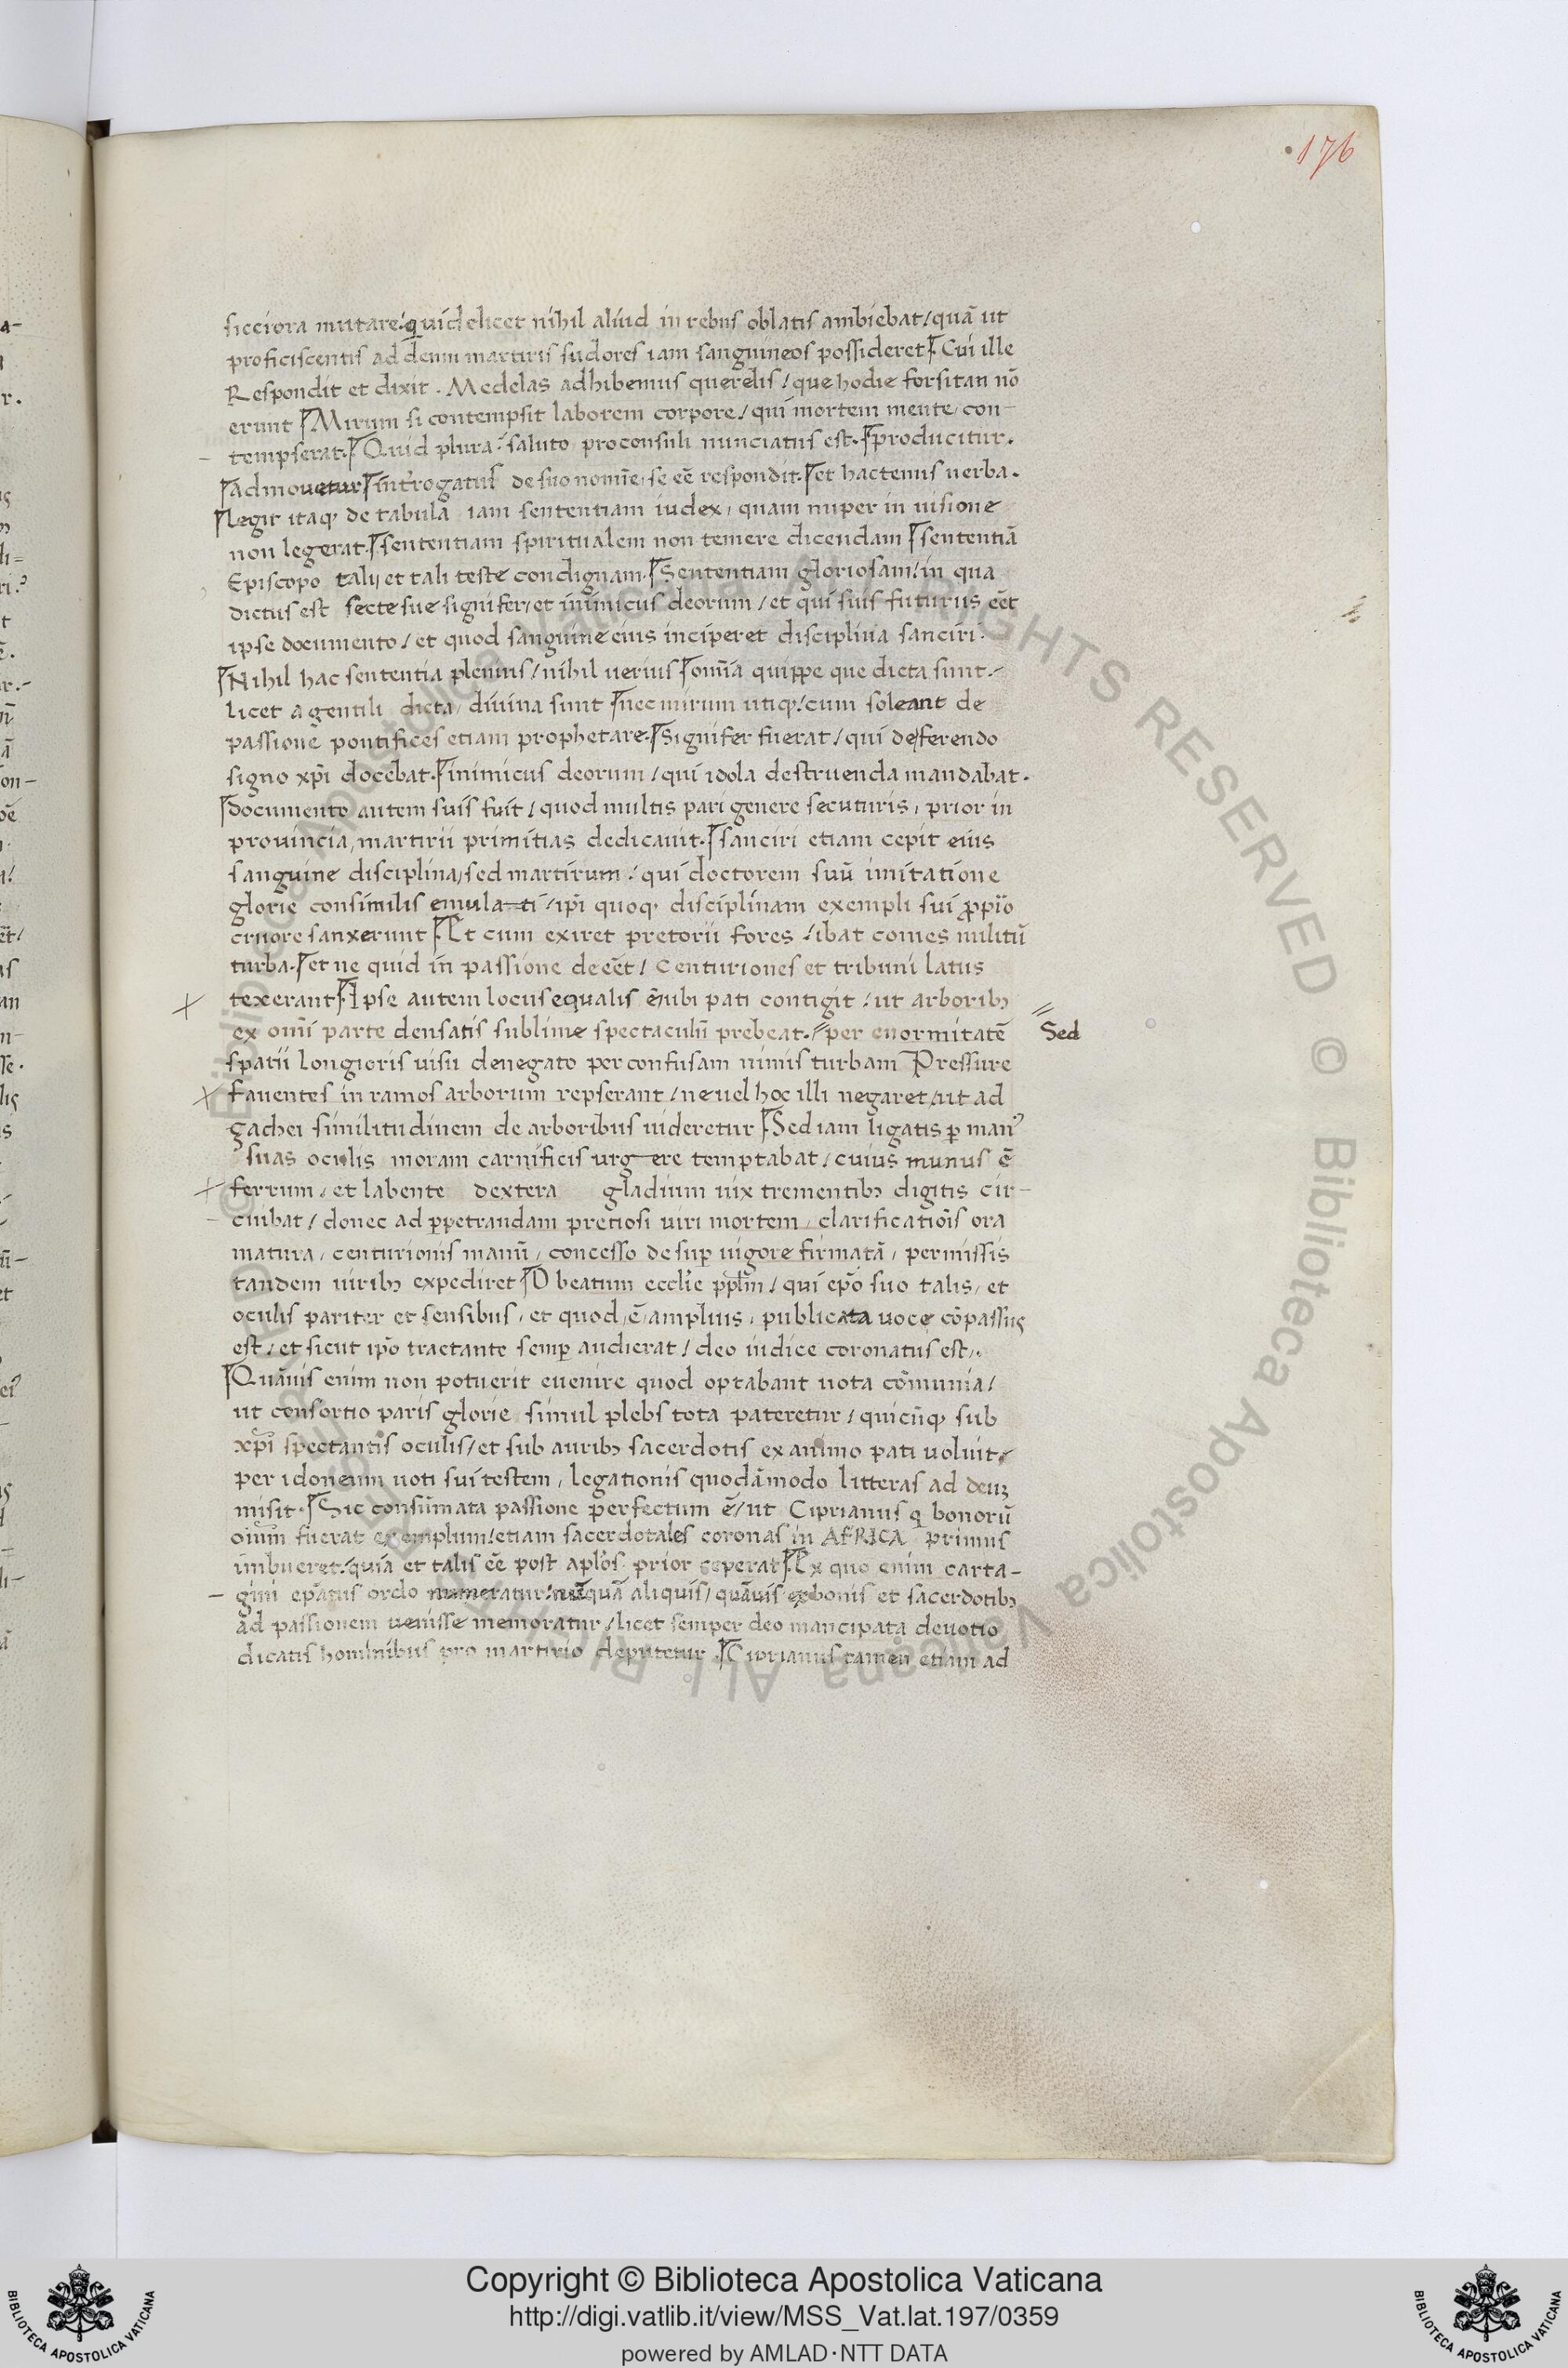 176
sicciora mutare. quid elicet nihil aliud in rebus oblatis ambiebat/ quā ut
proficiscentis ad deum martiris sudores iam sanguineos possideret. Cui ille
Respondit et dixit. Medelas adhibemus querelis/ que hodie forsitan nō
erunt Mirum si contempsit laborem corpore/ qui mortem mente/ con-
tempserat. Quid plura? saluto proconsuli nunciatus est. producitur.
Admouetur introgatus de suo nomīe/ se eē respondit. et hactenus uerba.
legit itaq; de tabula iam sententiam iudex, quam nuper in uisione
non legerat. sententiam spiritualem non temere dicendam sententiā
Episcopo talij et tali teste condignam. Sententiam gloriosam/ in qua
dictus est secte sue signifer/ et inimicus deorum/ et qui suis futurus eēt
ipse documento/ et quod sanguine eius inciperet disciplina sanciri.
Nihil hac sententia plenius/ nihil uerius omīa quippe que dicta sunt.
licet a gentili dicta/ diuina sunt nec mirum utiq;/ cum soleant de
passionē pontifices etiam prophetare. Signifer fuerat/ qui de ferendo
signo xp̄i docebat. inimicus deorum/ qui idola destruenda mandabat.
Documento autem suis fuit/ quod multis pari genere secuturis, prior in
prouincia, martirii primitias dedicauit. sanciri etiam cepit eius
sanguine disciplina, sed martirum/ qui doctorem suū imitatione
glorie consimilis emulati/ ip̄i quoq; disciplinam exempli sui p̄prio
cruore sanxerunt. Et cum exiret pretorii fores/ ibat comes militū
turba. et ne quid in passione deeēt/ Centuriones et tribuni latus
texerant. Ipse autem locus equalis ē/ ubi pati contigit/ ut arborib;
ex omī parte densatis sublime spectaculū prebeat. per enormitatē
Sed
spatii longioris uisu denegato per confusam nimis turbam Pressure
fauentes in ramos arborum repserant/ ne uel hoc illi negaret/ ut ad
gachei similitudinem de arboribus uideretur. Sed iam ligatis p man9
suas oculis moram carnificis urgere temptabat/ cuius munus ē
ferrum/ et labente dextera gladium uix trementib; digitis cir-
cuibat/ donec ad p̄petrandam pretiosi uiri mortem, clarificatiōis ora
matura, centurionis manū, concesso desup uigore firmatā, permissis
tandem uirib; expediret. O beatum eccl'ie pp̄lm/ qui ep̄o suo talis, et
oculis pariter et sensibus, et quod ē amplius, publicata uoce cōpassus
est/ et sicut ip̄o tractante semp audierat/ deo iudice coronatus est.
Quāuis enim non potuerit euenire quod optabant uota cōmunia/
ut consortio paris glorie simul plebs tota pateretur/ quicūq; sub
xp̄i spectantis oculis/ et sub aurib; sacerdotis ex animo pati uoluit.
per idoneum uoti sui testem, legationis quodāmodo litteras ad deuz
misit. Sic consūmata passione perfectum ē/ ut Ciprianus q bonorū
oium fuerat exemplum/ etiam sacerdotales coronas in AFRICA primus
imbueret. quia et talis eē post aplōs prior ceperat. Ex quo enim carta-
gini ep̄atus ordo numeratur. nūquā aliquis/ quāuis ex bonis et sacerdotib;
ad passionem uenisse memoratur/ licet semper deo mancipata deuotio
dicatis hominibus pro martirio deputetur. Ciprianus tamen etiam ad
Copyright © Biblioteca Apostolica Vaticana
http://digi.vatlib.it/view/MSS_Vat.lat.197/0359
powered by AMLAD·NTT DATA